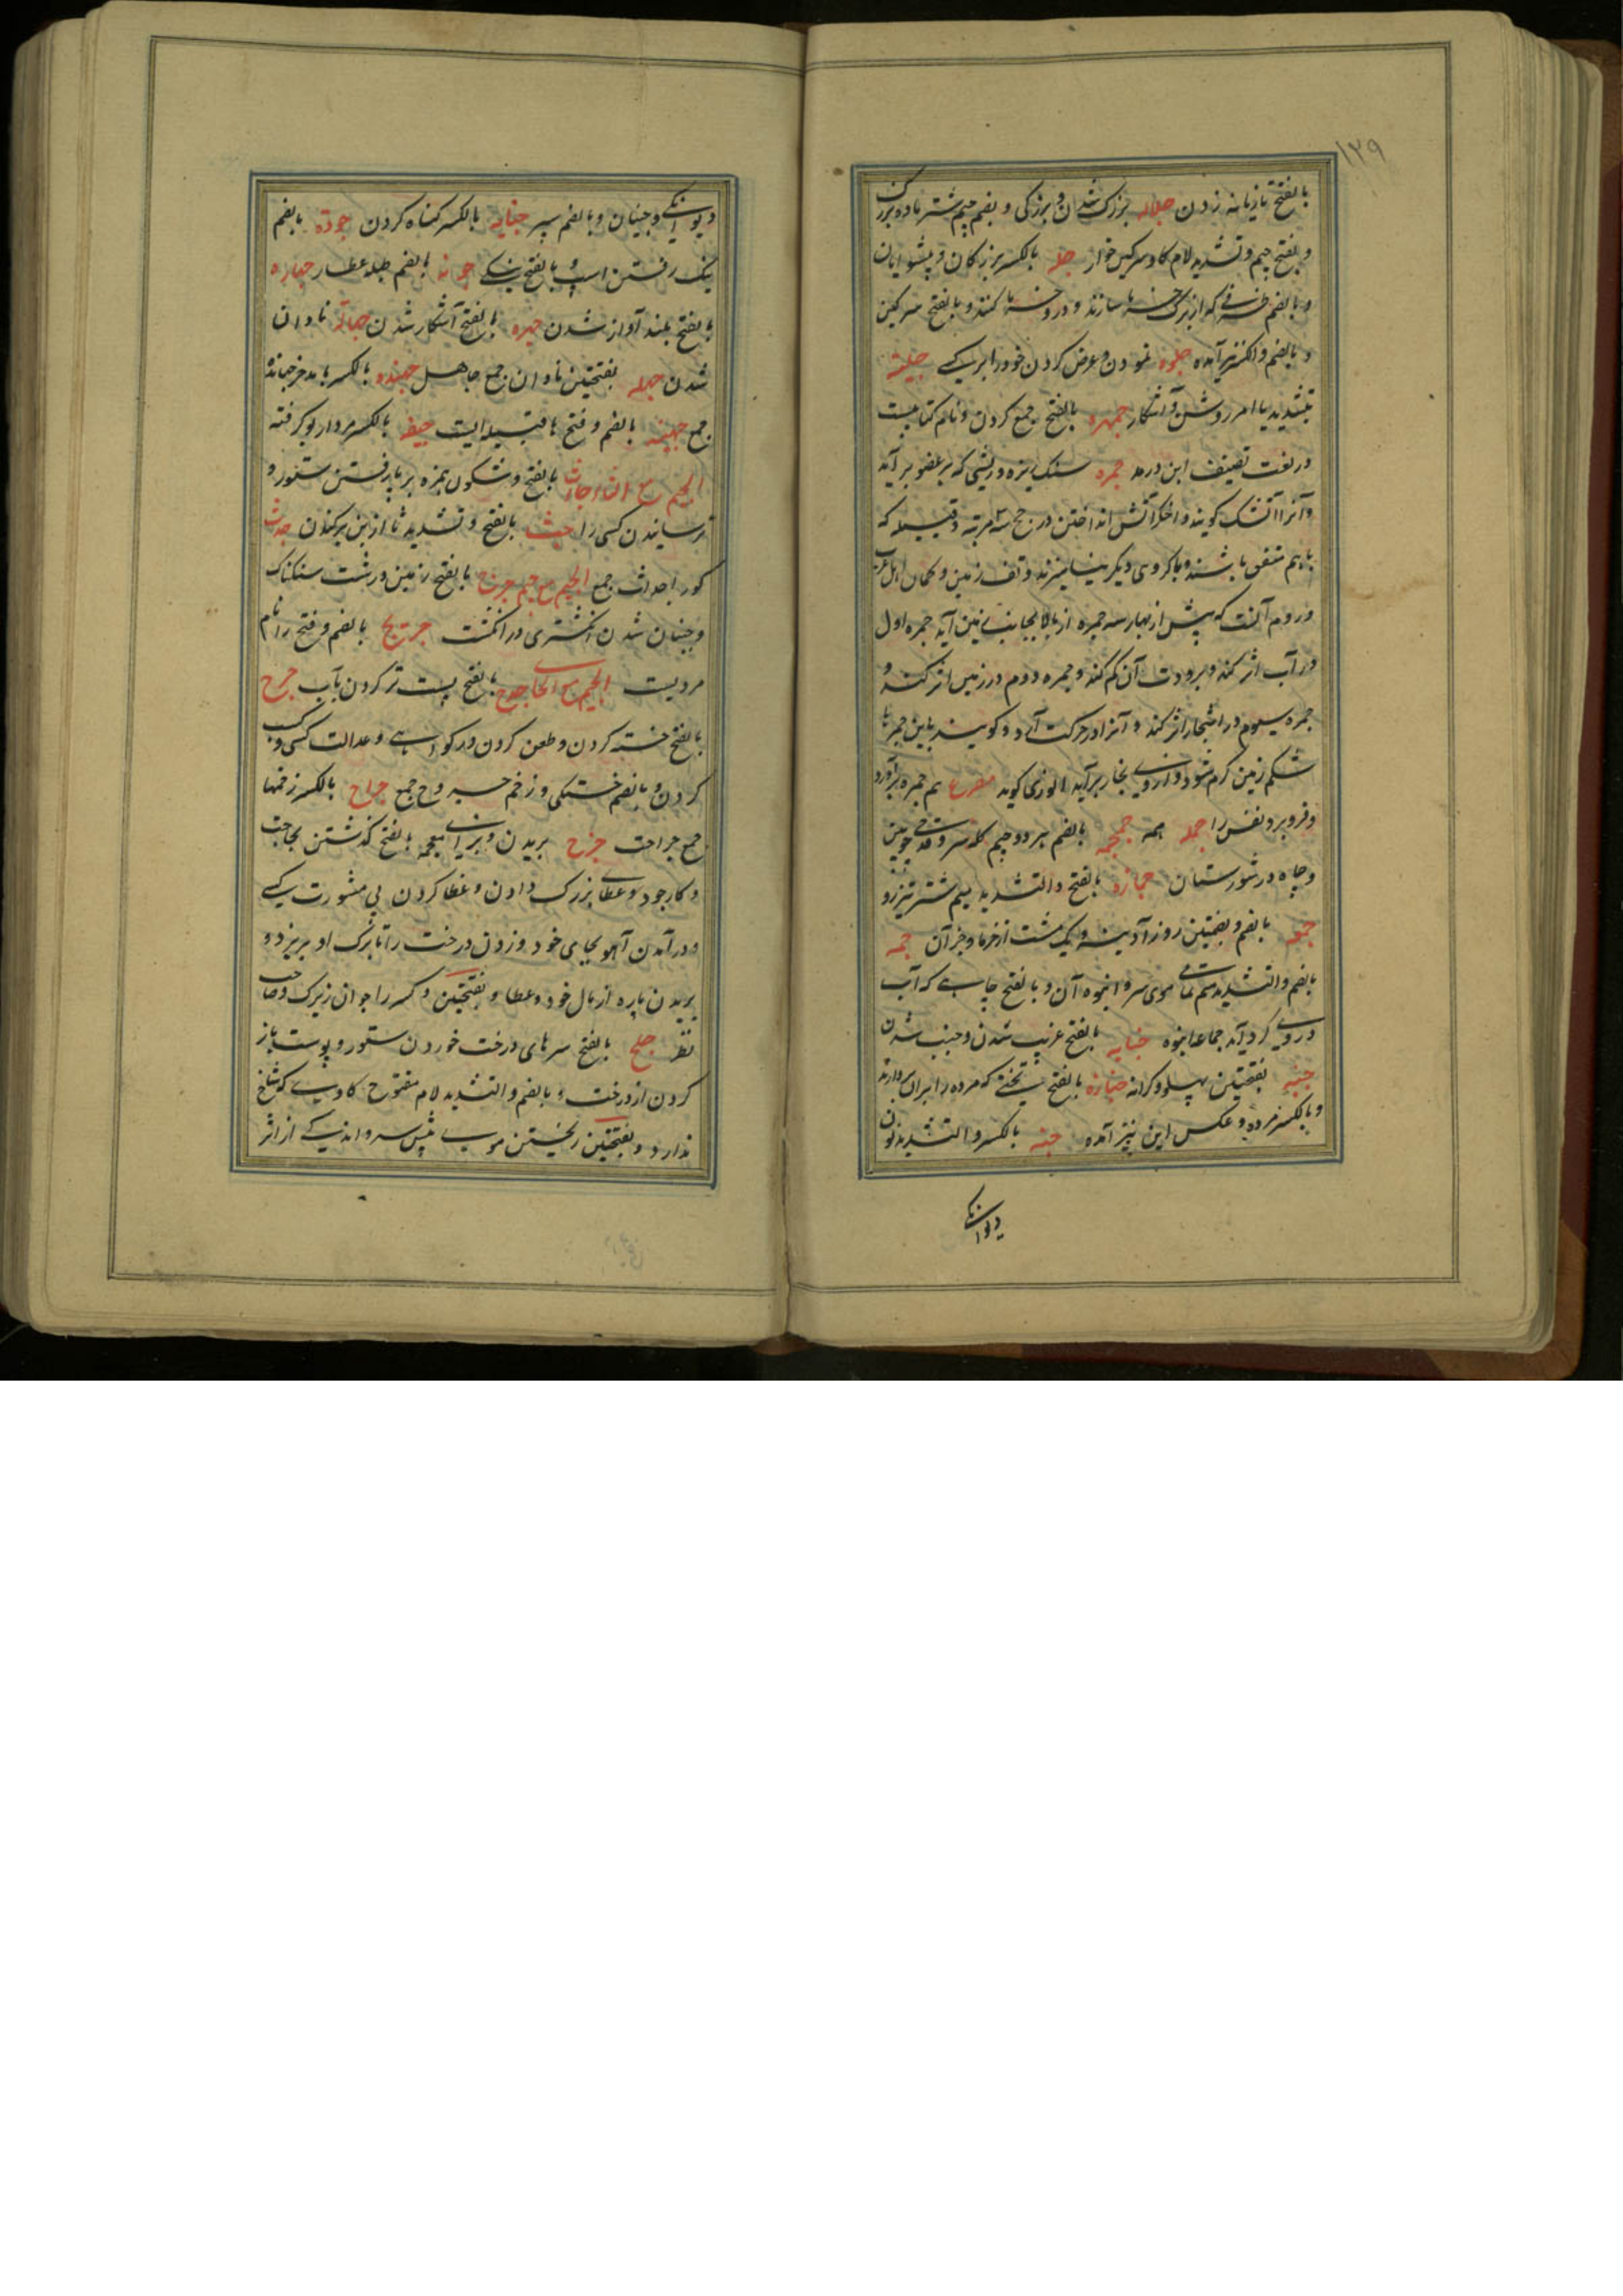 ۱۲۹
بالفتح تازیانه زدن جلاله بزرک شدن و بزرکی و بضم جیم شتر ماده بزرک
و بفتح جیم و تشدید لام کاو سرکین خوار جله بالکسر بزرکان و پیشوایان
و بالضم ظرفی که از برک خرما سازند و درو خرما کنند و بالفتح سرکین
و بالضم والکسر نیز آمده جلوه نمودن و عرض کردن خود را بر کسی جلیة
بتشدید یا امر روشن و آشکار جمهره بالفتح جمع کردن و نام کتابیست
در لغت تصنیف ابن درید جمره سنک ریزه و ریشی که بر عضو بر آید
و آنرا آتشک کویند و اخکر آتش انداختن در حج سه مرتبه و قبیله که
باهم متفق باشند و با کروهی دیکر نیامیزند و تف زمین و کمان اهل عرب
و روم آنست که پیش از بهار سه جمره از بالا بجانب زمین آید جمره اول
در آب اثر کند و برودت آن کم کند و جمره دوم در زمین اثر کند و
جمره سیوم در اشجار اثر کند و آنرا در حرکت آرد و کویند باین جمرها
شکم زمین کرم شود و از وی بخار برآید انوری کوید مصرع هم جمره برآورد
و فرو برد نفس را جمله همه جمجمه بالضم هر دو جیم کله سر و قدحی چوبین
و چاه در شورستان جمازه بالفتح والتشدید میم شتر تیزرو
جمعه بالضم و بضمتین روز آدینه و یک مشت از خرما و جز آن جمه
بالضم والتشدید میم تمامی موی سر و انبوه آن و بالفتح چاهی که آب
در وی کرد آید جماعه انبوه جنابه بالفتح غریب شدن و جنب شدن
جنبه بفتحتین پهلو و کرانه جنازه بالفتح تختی که مرده را بران بردارند
و بالکسر مرده و عکس این نیز آمده جنه بالکسر والتشدید نون
دیوانکی
دیوانکی و جنیان و بالضم سپر جنایه بالکسر کناه کردن جودة بالضم
نیک رفتن اسپ و بالفتح نیکی جونه بالضم طبله عطار جهاره
بالفتح بلند آواز شدن جهره بالفتح آشکار شدن جهالة نادان
شدن جهله بفتحتین نادانان جمع جاهل جهنده بالکسر
جمع جهینه بالضم و فتح ها قبیله ایست جیفه بالکسر مردار بو کرفته
الجیم مع الثا جأث بالفتح و سکون همزه بر بار رفتن ستور و
ترسانیدن کسی را جث بالفتح و تشدید ثا از بن برکندن جدث
کور اجداث جمع الجیم مع جیم جرج بالفتح زمین درشت سنکناک
و جنبان شدن انکشتری در انکشت جریج بالضم و فتح را نام
مردیست الجیم مع الحا جدح بالفتح پست تر کردن بآب جرح
بالفتح خسته کردن و طعن کردن در کواهی و عدالت کسی و کسب
کردن و بالضم خستکی و زخم جروح جمع جراح بالکسر زخمها
جمع جراحت جزح بریدن و بزای معجمه بالفتح کذشتن بحاجت
و کار خود و عطای بزرک دادن و عطا کردن بی مشورت کسی
و در آمدن آهو بجای خود و زدن درخت را تا برک او بریزد و
بریدن پاره از مال خود و عطا و بفتحتین و کسر را جوان زیرک و صاحب
نظر جلح بالفتح سرهای درخت خوردن ستور و پوست باز
کردن از درخت و بالضم والتشدید لام مفتوح کاوی که شاخ
ندارد و بفتحتین ریختن موی پیش سر و اندکی از اثر